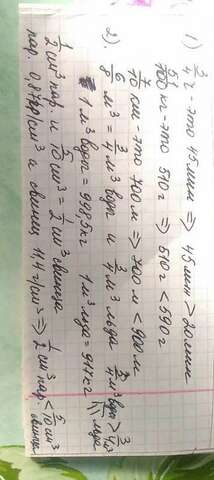 1) 3/4 ч - это 45 мин ⇒ 45 мин > 20 мин
51/100 кг - это 510 г ⇒ 510 г < 590 г
7/10 см - это 700 м ⇒ 700 м < 900 м
2. 6/8 м³ = 3/4 м³ воды и 3/4 м³ льда
1 м³ воды = 998,5 кг 1 м³ льда = 917 кг
3/4 м³ воды > 3/4 м³ льда
1/2 см³ пар. и 5/10 см³ = 1/2 см³ свинца
пар. 0,87 гр/см³ и свинец 11,4 г/см³ ⇒ 1/2 см³ пар < 5/10 см³ свинц